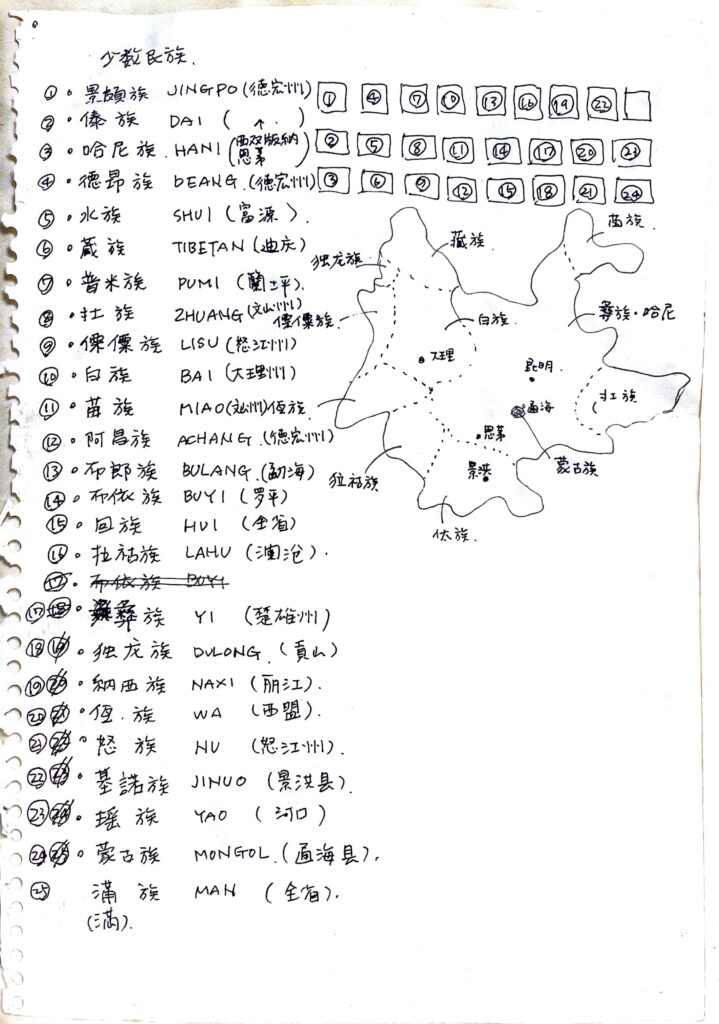 少数民族.
① • 景頗族 JINGPO (德宏州)
② • 傣族 DAI ( ↑ . )
③ • 哈尼族. HANI (西双版納 思茅)
④ • 德昂族 DEANG. (德宏州)
⑤ • 水族 SHUI (富源).
⑥ • 蔵族 TIBETAN (迪庆)
⑦ • 普米族 PUMI (蘭坪).
⑧ • 壮族 ZHUANG (文山州)
⑨ • 傈僳族 LISU (怒江州)
⑩ • 白族 BAI (大理州)
⑪ • 苗族 MIAO (文山州)
⑫ • 阿昌族 ACHANG. (德宏州)
⑬ • 布郎族 BULANG (勐海)
⑭ • 布依族 BUYI (罗平)
⑮ • 回族 HUI (全省)
⑯ • 拉祜族 LAHU (澜沧).
⑰ • 布依族 BUYI
⑰ ⑱ • 彝族 YI (楚雄州)
⑱ ⑲ • 独龙族 DULONG. (貢山)
⑲ ⑳ • 納西族 NAXI (丽江).
⑳ ㉑ • 佤.族 WA (西盟).
㉑ ㉒ • 怒族 NU (怒江州).
㉒ ㉓ • 基諾族 JINUO (景洪县).
㉓ ㉔ • 瑶族 YAO (河口)
㉔ ㉕ • 蒙古族 MONGOL. (通海县).
㉕ 满族 MAN (全省).
(滿).
① ④ ⑦ ⑩ ⑬ ⑯ ⑲ ㉒
② ⑤ ⑧ ⑪ ⑭ ⑰ ⑳ ㉓
③ ⑥ ⑨ ⑫ ⑮ ⑱ ㉑ ㉔
苗族
藏族
独龙族
傈僳族
白族
彝族・哈尼
大理
昆明
壮族
佤族
通海
思茅
蒙古族
拉祜族
景洪
傣族